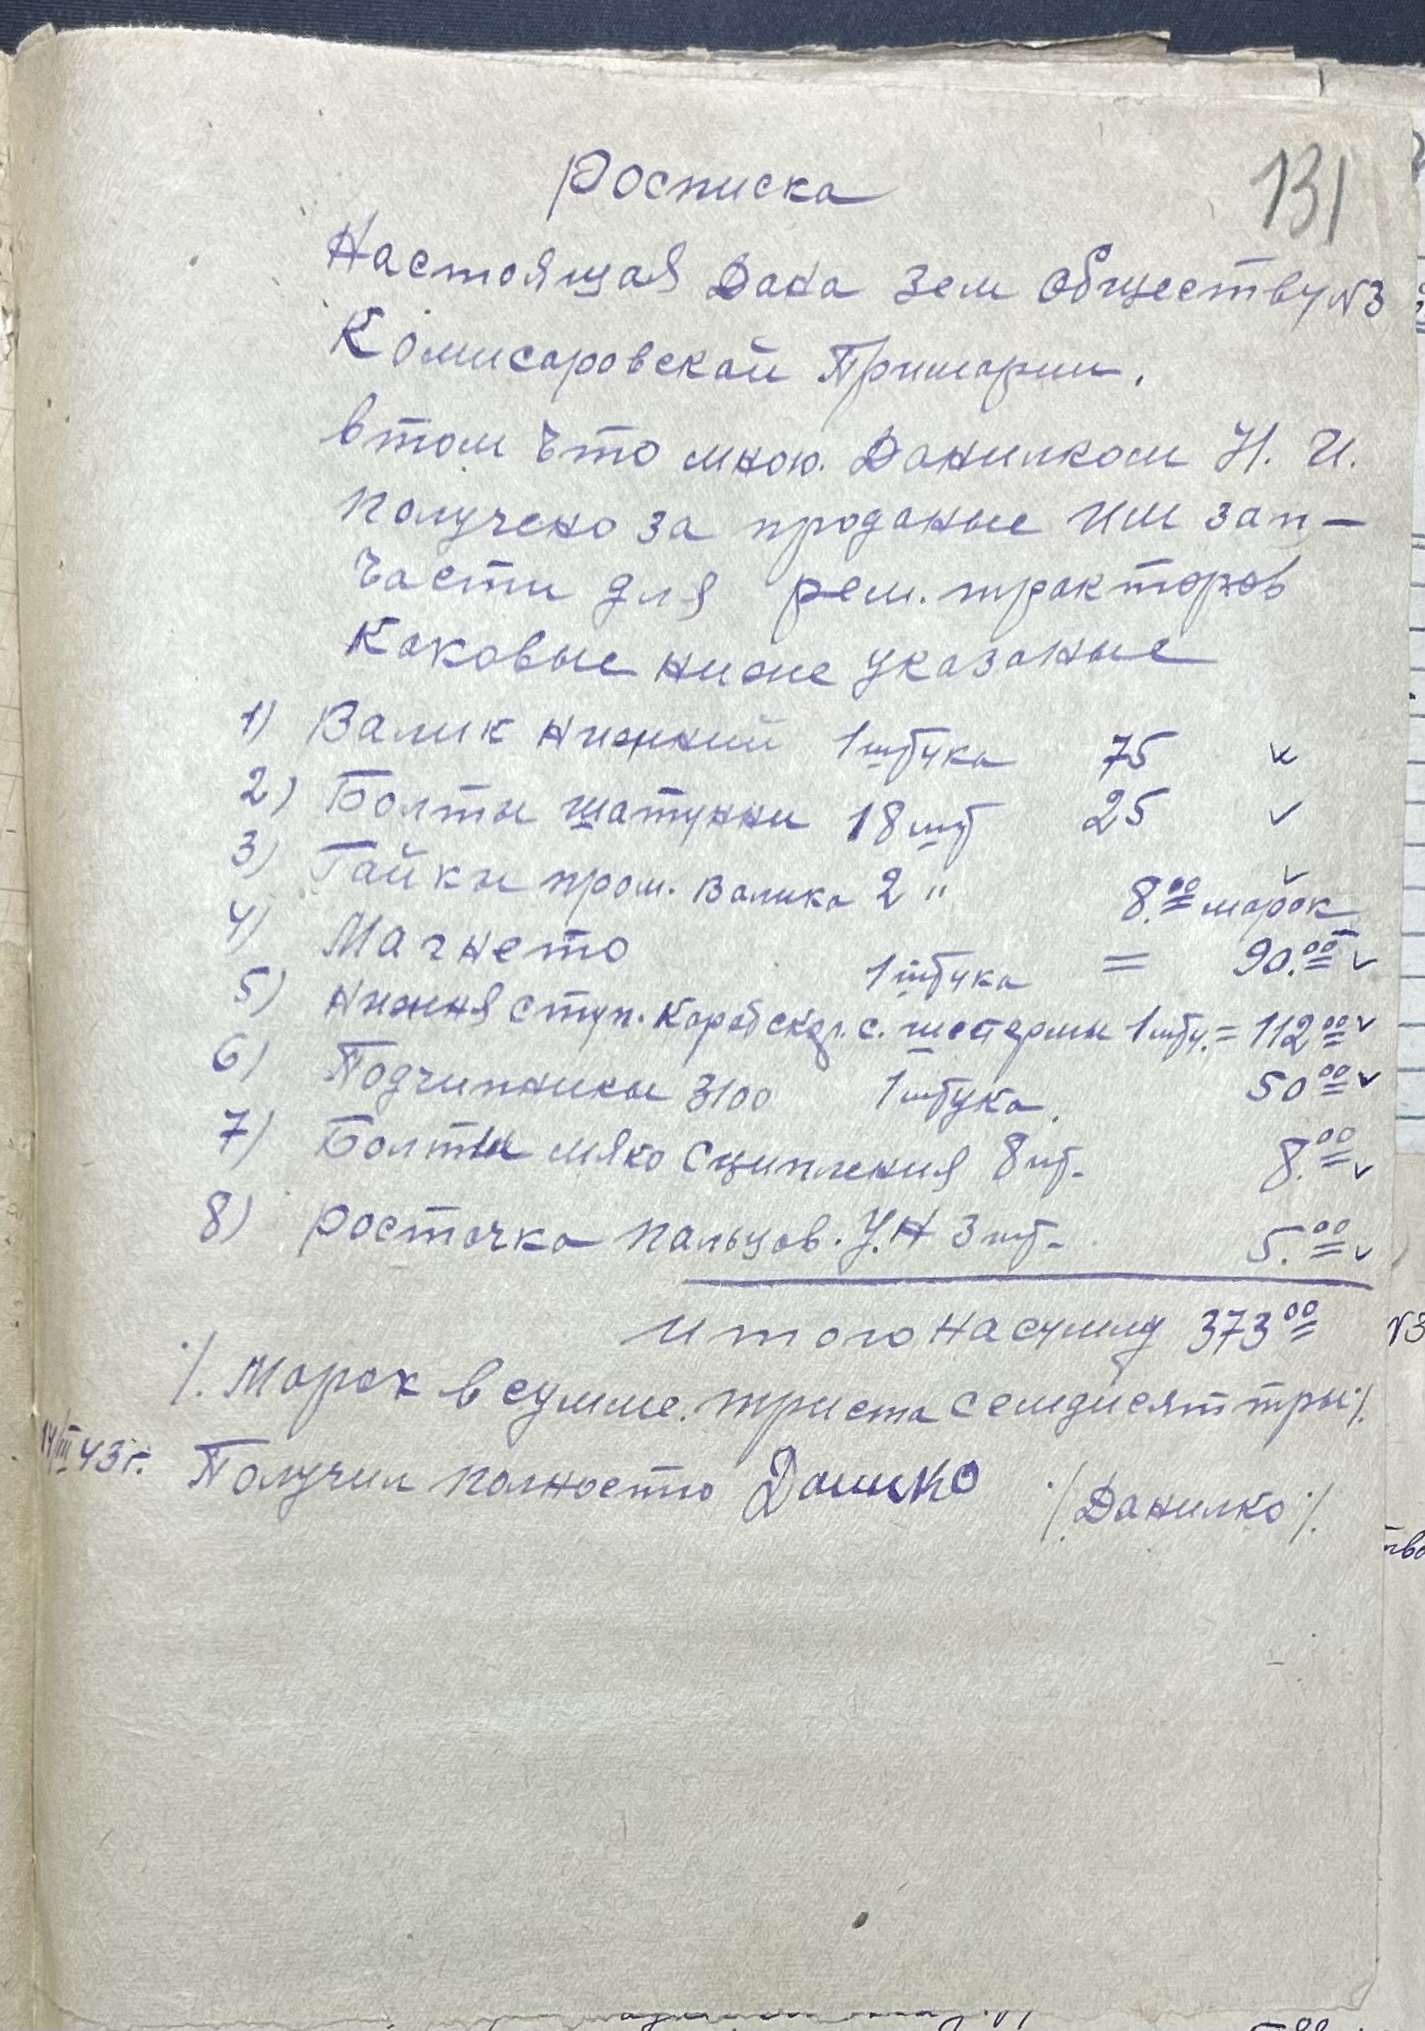 131
Росписка
Настоящая дана зем обществу №3
Комисаровской Примарии.
в том что мною. Данилком Н. И.
получено за проданые им зап-
части для рем. тракторов
Каковые ниже указаные
1) Валик нижний 1 штука 75 ✓
2) Болты шатунни 18 шт 25 ✓
3) Гайки пром. валика 2 " 8.00 марок ✓
4) Магнето 1 штука = 90.00 ✓
5) Нижня ступ. с. шестерни 1 шту. = 112 00 ✓
6) Подчипники 3100 1 штука. 50 00 ✓
7) Болты мяко сципления 8 шт. 8.00 ✓
8) росточка пальцов. У.Н 3 шт. 5.00 ✓
Итого на сумму 373 00
/. Марок в сумме. триста семдисят тры /.
14/III 43 г. Получил полностю Данилко /. Данилко /.
№3